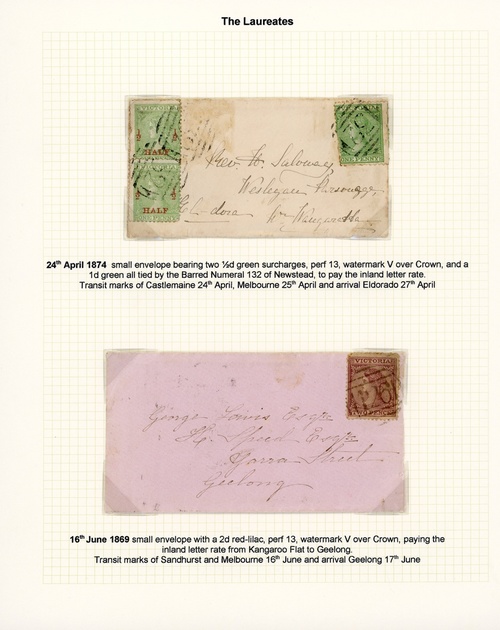 The Laureates
VICTORIA
½ ½
HALF
½ ½
HALF
ONE PENNY
Rev. W.
Wesleyan Parsonage,
El-dora Wangaratta
24th April 1874 small envelope bearing two ½d green surcharges, perf 13, watermark V over Crown, and a
1d green all tied by the Barred Numeral 132 of Newstead, to pay the inland letter rate.
Transit marks of Castlemaine 24th April, Melbourne 25th April and arrival Eldorado 27th April
VICTORIA
TWO PENCE
George Lewis Esqre
H. Speed Esqre
Yarra Street
Geelong
16th June 1869 small envelope with a 2d red-lilac, perf 13, watermark V over Crown, paying the
inland letter rate from Kangaroo Flat to Geelong.
Transit marks of Sandhurst and Melbourne 16th June and arrival Geelong 17th June